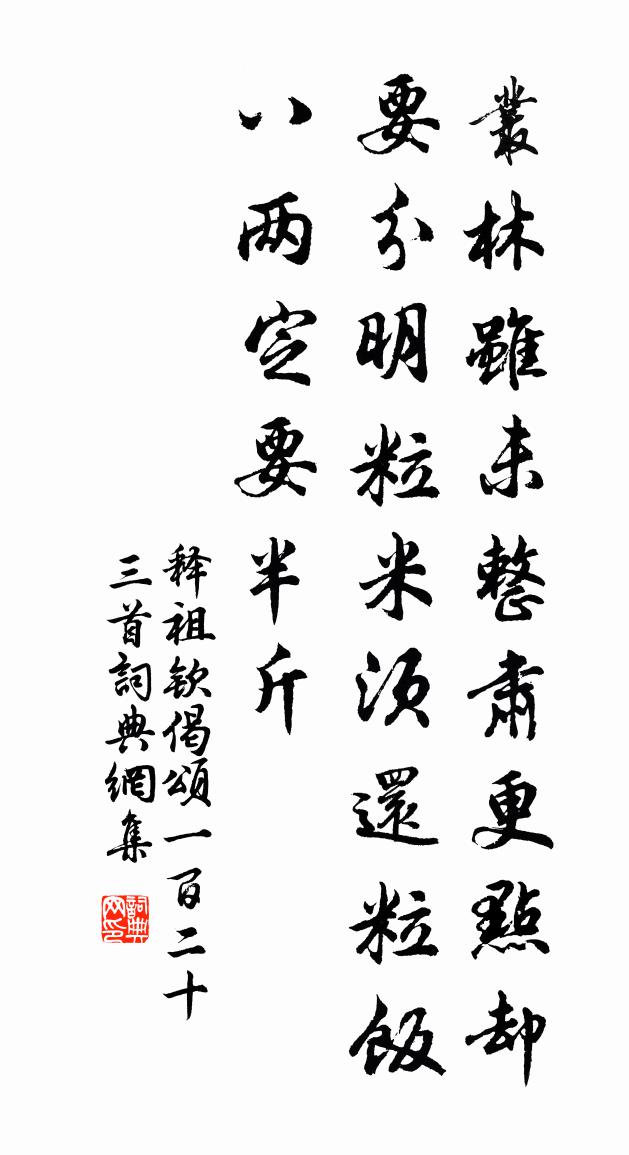 叢林雖未整肅更點却
要分明粒米須還粒飯
八两定要半斤
释祖欽偈頌一百二十
三首詞典網集
詞典網印